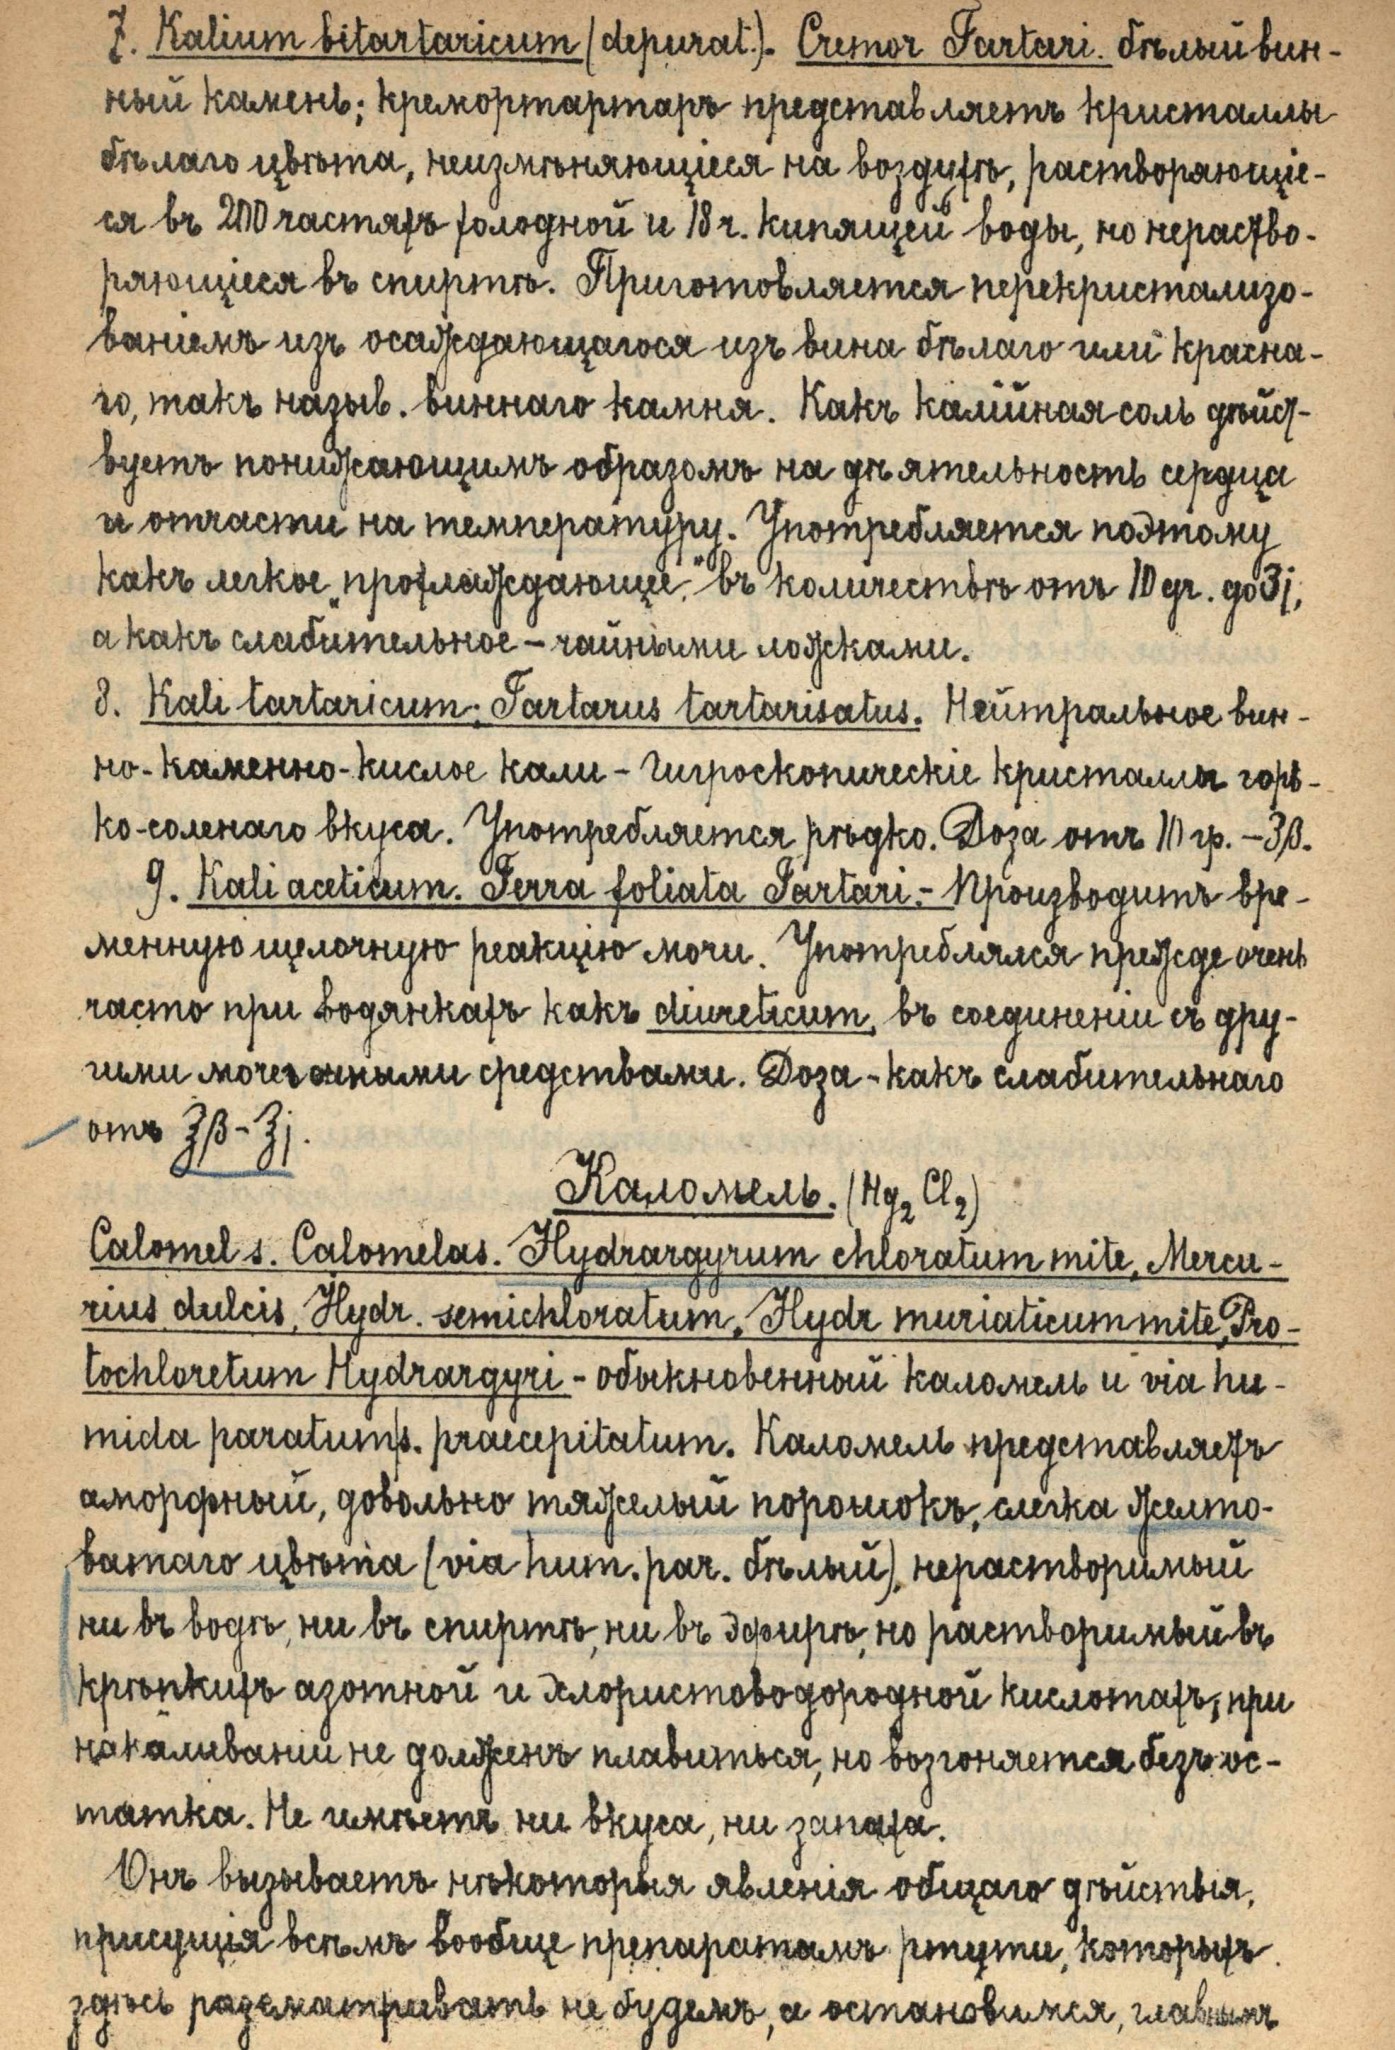 7. Kalium bitartaricum (depurat.). Cremor Tartari. бѣлый вин-
ный камень; кремортартаръ представляетъ кристаллы
бѣлаго цвѣта, неизмѣняющіеся на воздухѣ, растворяющіе-
ся въ 200 частяхъ холодной и 18 ч. кипящей воды, но нераство-
ряющіеся въ спиртѣ. Приготовляется перекристализо-
ваніемъ изъ осаждающагося изъ вина бѣлаго или красна-
го, такъ назыв. виннаго камня. Какъ калійная соль дѣйст-
вуетъ понижающимъ образомъ на дѣятельность сердца
и отчасти на температуру. Употребляется поэтому
какъ легкое „прохлаждающее“ въ количествѣ отъ 10 gr. до ʒj,
а какъ слабительное – чайными ложками.
8. Kali tartaricum; Tartarus tartarisatus. Нейтральное вин-
но-каменно-кислое кали – Гигроскопическіе кристаллы горь-
ко-соленаго вкуса. Употребляется рѣдко. Доза отъ 10 гр. – ʒβ.
9. Kali aceticum. Terra foliata Tartari. – Производитъ вре-
менную щелочную реакцію мочи. Употреблялся прежде очень
часто при водянкахъ какъ diureticum, въ соединеніи съ дру-
гими мочегонными средствами. Доза – какъ слабительнаго
отъ ℥β – ℥j.
Каломель. (Hg₂ Cl₂)
Calomel s. Calomelas. Hydrargyrum chloratum mite, Mercu-
rius dulcis, Hydr. semichloratum, Hydr muriaticum mite, Pro-
tochloretum Hydrargyri – обыкновенный каломель и via hu-
mida paratum s. praecepitatum. Каломель представляетъ
аморфный, довольно тяжелый порошокъ, слегка желто-
ватаго цвѣта (via hum. par. бѣлый), нерастворимый
ни въ водѣ, ни въ спиртѣ, ни въ эфирѣ, но растворимый въ
крѣпкихъ азотной и хлористоводородной кислотахъ; при
накаливаніи не долженъ плавиться, но возгоняется безъ ос-
татка. Не имѣетъ ни вкуса, ни запаха.
Онъ вызываетъ нѣкоторыя явленія общаго дѣйствія,
присущія всѣмъ вообще препаратамъ ртути, которыхъ
здѣсь разсматривать не будемъ, а остановимся, главнымъ